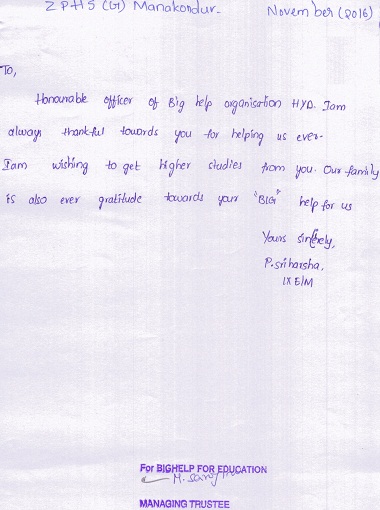 ZPHS (G) Manakondur. November (2016)
To,
Honourable officer of Big help organisation HYD. Iam
always thankful towords you for helping us ever-
Iam wishing to get higher studies from you. Our family
is also ever gratitude towards your "BIG" help for us
Yours sincerely,
P. sri harsha,
IX E/M
For BIGHELP FOR EDUCATION
MANAGING TRUSTEE